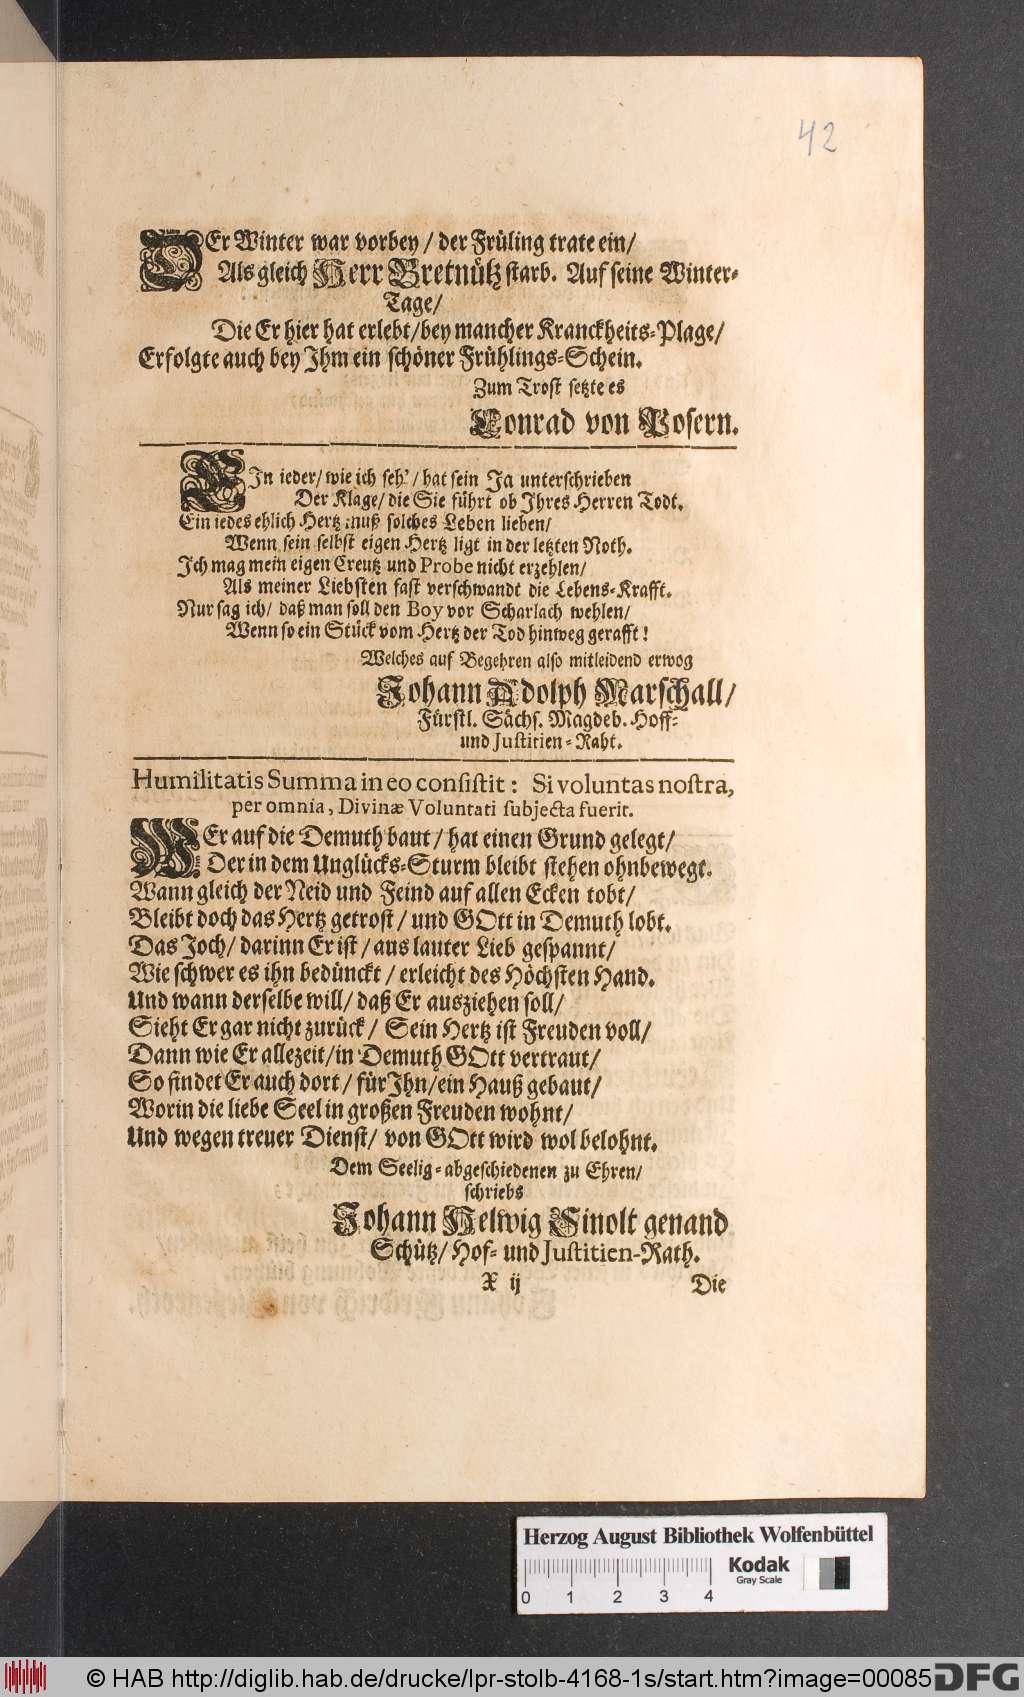 42
DEr Winter war vorbey / der Früling trate ein /
Als gleich Herr Bretnütz starb. Auf seine Winter-
Tage /
Die Er hier hat erlebt / bey mancher Kranckheits-Plage /
Erfolgte auch bey Ihm ein schöner Frühlings-Schein.
Zum Trost setzte es
Conrad von Posern.
EIn ieder / wie ich seh' / hat sein Ja unterschrieben
Der Klage / die Sie führt ob Ihres Herren Todt.
Ein iedes ehlich Hertz muß solches Leben lieben /
Wenn sein selbst eigen Hertz ligt in der letzten Noth.
Ich mag mein eigen Creutz und Probe nicht erzehlen /
Als meiner Liebsten fast verschwandt die Lebens-Krafft.
Nur sag ich / daß man soll den Boy vor Scharlach wehlen /
Wenn so ein Stück vom Hertz der Tod hinweg gerafft!
Welches auf Begehren also mitleidend erwog
Johann Adolph Marschall /
Fürstl. Sächs. Magdeb. Hoff-
und Justitien-Raht.
Humilitatis Summa in eo consistit: Si voluntas nostra,
per omnia, Divinæ Voluntati subjecta fuerit.
WEr auf die Demuth baut / hat einen Grund gelegt /
Der in dem Unglücks-Sturm bleibt stehen ohnbewegt.
Wann gleich der Neid und Feind auf allen Ecken tobt /
Bleibt doch das Hertz getrost / und GOtt in Demuth lobt.
Das Joch / darinn Er ist / aus lauter Lieb gespannt /
Wie schwer es ihn bedünckt / erleicht des Höchsten Hand.
Und wann derselbe will / daß Er ausziehen soll /
Sieht Er gar nicht zurück / Sein Hertz ist Freuden voll /
Dann wie Er allezeit / in Demuth GOtt vertraut /
So findet Er auch dort / für Ihn / ein Hauß gebaut /
Worin die liebe Seel in großen Freuden wohnt /
Und wegen treuer Dienst / von GOtt wird wol belohnt.
Dem Seelig-abgeschiedenen zu Ehren /
schriebs
Johann Helwig Sinolt genand
Schütz / Hof- und Justitien-Rath.
X ij Die
Herzog August Bibliothek Wolfenbüttel
0 1 2 3 4
Kodak
Gray Scale
© HAB http://diglib.hab.de/drucke/lpr-stolb-4168-1s/start.htm?image=00085
DFG